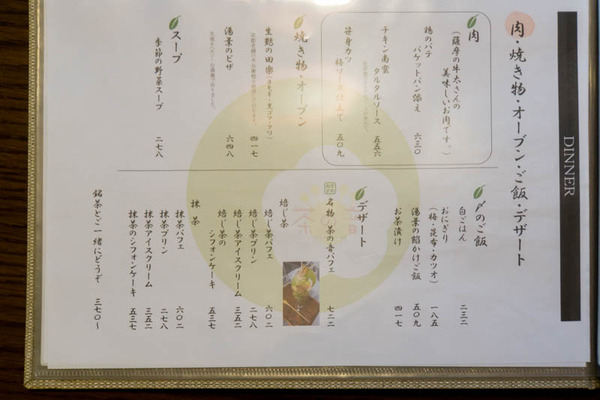 DINNER
肉・焼き物・オーブン・ご飯・デザート
肉
(薩摩の牛太さんの
美味しいお肉です。)
鶏のパテ
バケットパン添え 六三〇
チキン南蛮
タルタルソース 五五六
笹身カツ
梅ソース仕立て 五〇九
焼き物・オーブン
生麩の田楽
四一七
湯葉のピザ
六四八
スープ
季節の野菜スープ 二七八
〆のご飯
白ごはん 二三二
おにぎり
(梅・昆布・カツオ) 一八五
湯葉の餡かけご飯 五〇九
お茶漬け 四一七
デザート
名物・茶の音パフェ 七二二
焙じ茶
焙じ茶パフェ 六〇二
焙じ茶プリン 二七八
焙じ茶アイスクリーム 三五二
焙じ茶の
シフォンケーキ 五三七
抹茶
抹茶パフェ 六〇二
抹茶プリン 二七八
抹茶アイスクリーム 三五二
抹茶のシフォンケーキ 五三七
銘茶とご一緒にどうぞ 三七〇〜